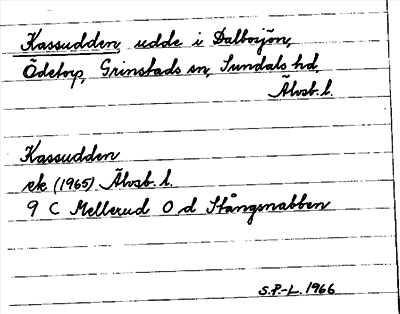 Kassudden, udde i Dalbosjön,
Ödetorp, Grinstads sn, Sundals hd,
Älvsb. l.
Kassudden
ek (1965) Älvsb. l.
9 C Mellerud O d Stångsnabben
S.P.-L. 1966